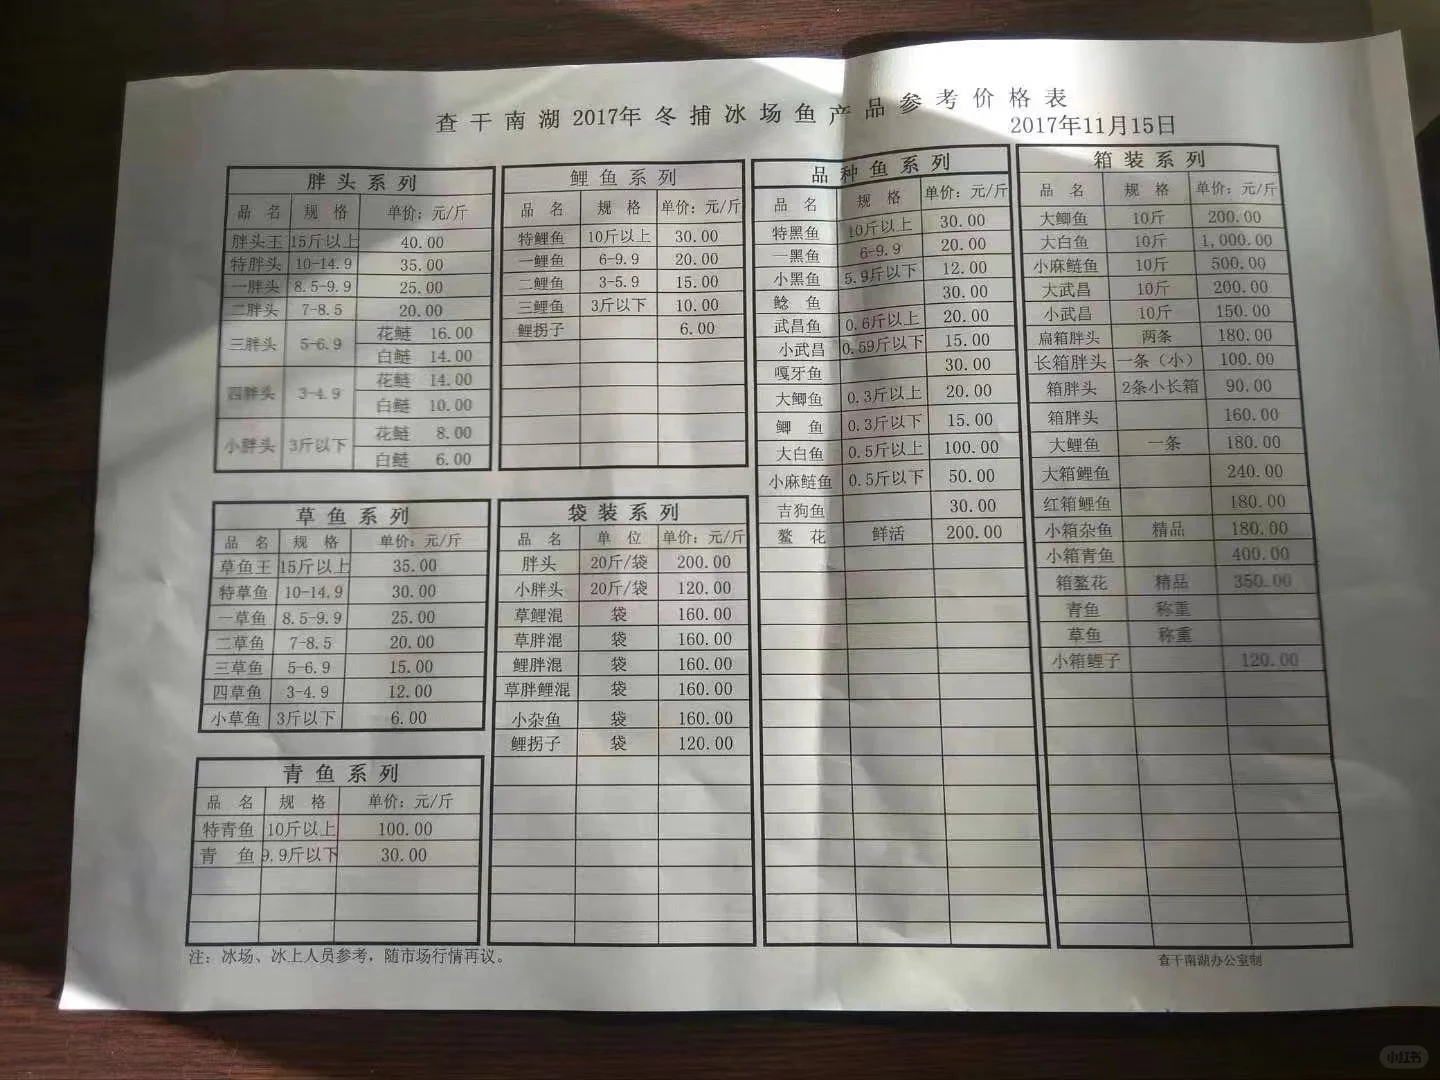 查干南湖2017年冬捕冰场鱼产品参考价格表
2017年11月15日
胖头系列
品名 规格 单价：元/斤
胖头王 15斤以上 40.00
特胖头 10-14.9 35.00
一胖头 8.5-9.9 25.00
二胖头 7-8.5 20.00
三胖头 5-6.9 花鲢 16.00
白鲢 14.00
四胖头 3-4.9 花鲢 14.00
白鲢 10.00
小胖头 3斤以下 花鲢 8.00
白鲢 6.00
草鱼系列
品名 规格 单价：元/斤
草鱼王 15斤以上 35.00
特草鱼 10-14.9 30.00
一草鱼 8.5-9.9 25.00
二草鱼 7-8.5 20.00
三草鱼 5-6.9 15.00
四草鱼 3-4.9 12.00
小草鱼 3斤以下 6.00
青鱼系列
品名 规格 单价：元/斤
特青鱼 10斤以上 100.00
青鱼 9.9斤以下 30.00
鲤鱼系列
品名 规格 单价：元/斤
特鲤鱼 10斤以上 30.00
一鲤鱼 6-9.9 20.00
二鲤鱼 3-5.9 15.00
三鲤鱼 3斤以下 10.00
鲤拐子 6.00
袋装系列
品名 单位 单价：元/斤
胖头 20斤/袋 200.00
小胖头 20斤/袋 120.00
草鲤混 袋 160.00
草胖混 袋 160.00
鲤胖混 袋 160.00
草胖鲤混 袋 160.00
小杂鱼 袋 160.00
鲤拐子 袋 120.00
品种鱼系列
品名 规格 单价：元/斤
特黑鱼 10斤以上 30.00
一黑鱼 6-9.9 20.00
小黑鱼 5.9斤以下 12.00
鲶鱼 30.00
武昌鱼 0.6斤以上 20.00
小武昌 0.59斤以下 15.00
嘎牙鱼 30.00
大鲫鱼 0.3斤以上 20.00
鲫鱼 0.3斤以下 15.00
大白鱼 0.5斤以上 100.00
小麻鲢鱼 0.5斤以下 50.00
吉狗鱼 30.00
鳌花 鲜活 200.00
箱装系列
品名 规格 单价：元/斤
大鲫鱼 10斤 200.00
大白鱼 10斤 1,000.00
小麻鲢鱼 10斤 500.00
大武昌 10斤 200.00
小武昌 10斤 150.00
扁箱胖头 两条 180.00
长箱胖头 一条（小） 100.00
箱胖头 2条小长箱 90.00
箱胖头 160.00
大鲤鱼 一条 180.00
大箱鲤鱼 240.00
红箱鲤鱼 180.00
小箱杂鱼 精品 180.00
小箱青鱼 400.00
箱鳌花 精品 350.00
青鱼 称重
草鱼 称重
小箱鲤子 120.00
注：冰场、冰上人员参考，随市场行情再议。
查干南湖办公室制
小红书